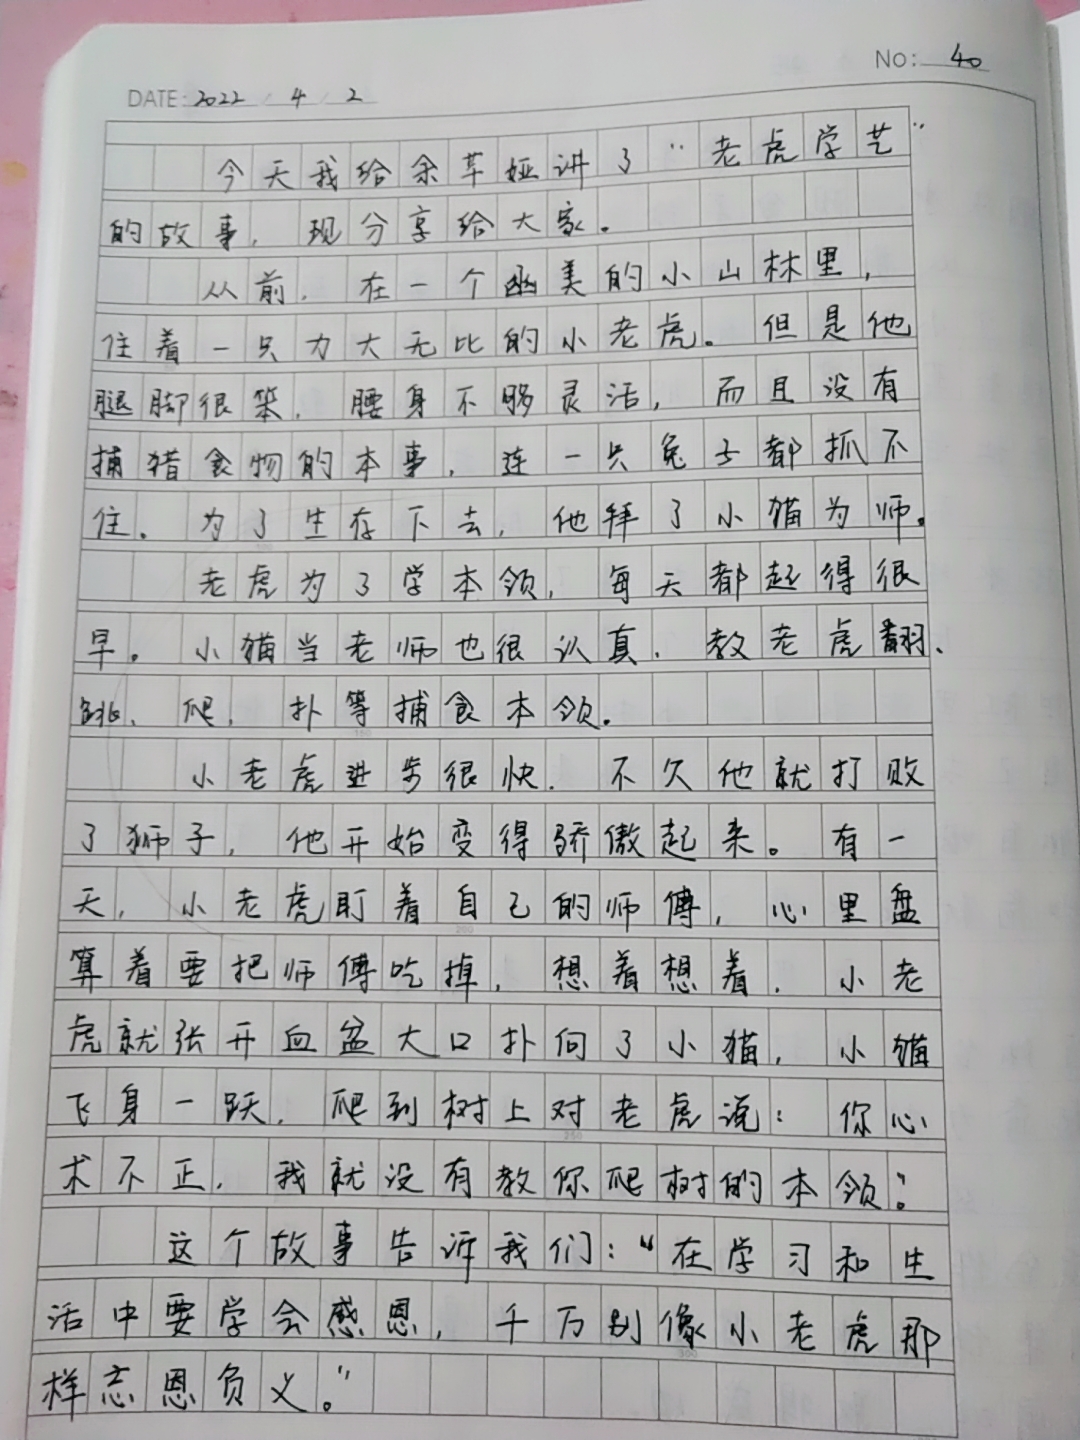 NO: 40
DATE: 2022 / 4 / 2
今天我给余草娅讲了“老虎学艺”
的故事，现分享给大家。
从前，在一个幽美的小山林里，
住着一只力大无比的小老虎。但是他
腿脚很笨，腰身不够灵活，而且没有
捕猎食物的本事，连一只兔子都抓不
住。为了生存下去，他拜了小猫为师。
老虎为了学本领，每天都起得很
早。小猫当老师也很认真，教老虎翻、
跳、爬，扑等捕食本领。
小老虎进步很快，不久他就打败
了狮子，他开始变得骄傲起来。有一
天，小老虎盯着自己的师傅，心里盘
算着要把师傅吃掉，想着想着，小老
虎就张开血盆大口扑向了小猫，小猫
飞身一跃，爬到树上对老虎说：你心
术不正，我就没有教你爬树的本领。”
这个故事告诉我们：“在学习和生
活中要学会感恩，千万别像小老虎那
样忘恩负义。”